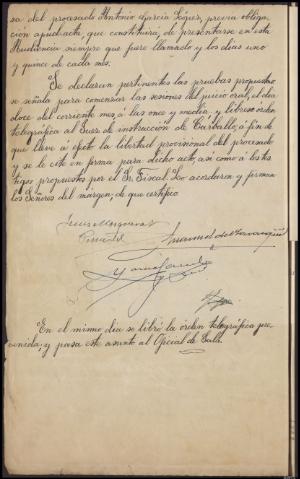 sa del procesado Antonio García López, previa obliga-
ción apud acta, que constituirá, de presentarse en esta
Audiencia siempre que fuere llamado y los días uno
y quince de cada mes.
Se declaran pertinentes las pruebas propuestas
se señala para comenzar las sesiones del juicio oral, el día
doce del corriente mes á las once y media, y líbrese orden
telegráfica al Juez de instrucción de Carballo, a fin de
que lleve a efecto la libertad provisional del procesado
y se le cite en forma para dicho acto, así como á los tes-
tigos propuestos por el Sr. Fiscal. Lo acordaron y firman
los Señores del margen; de que certifico
Pimentel
Manuel de
En el mismo día se libró la orden telegráfica pre-
venida, y pasa este asunto al Oficial de Sala.